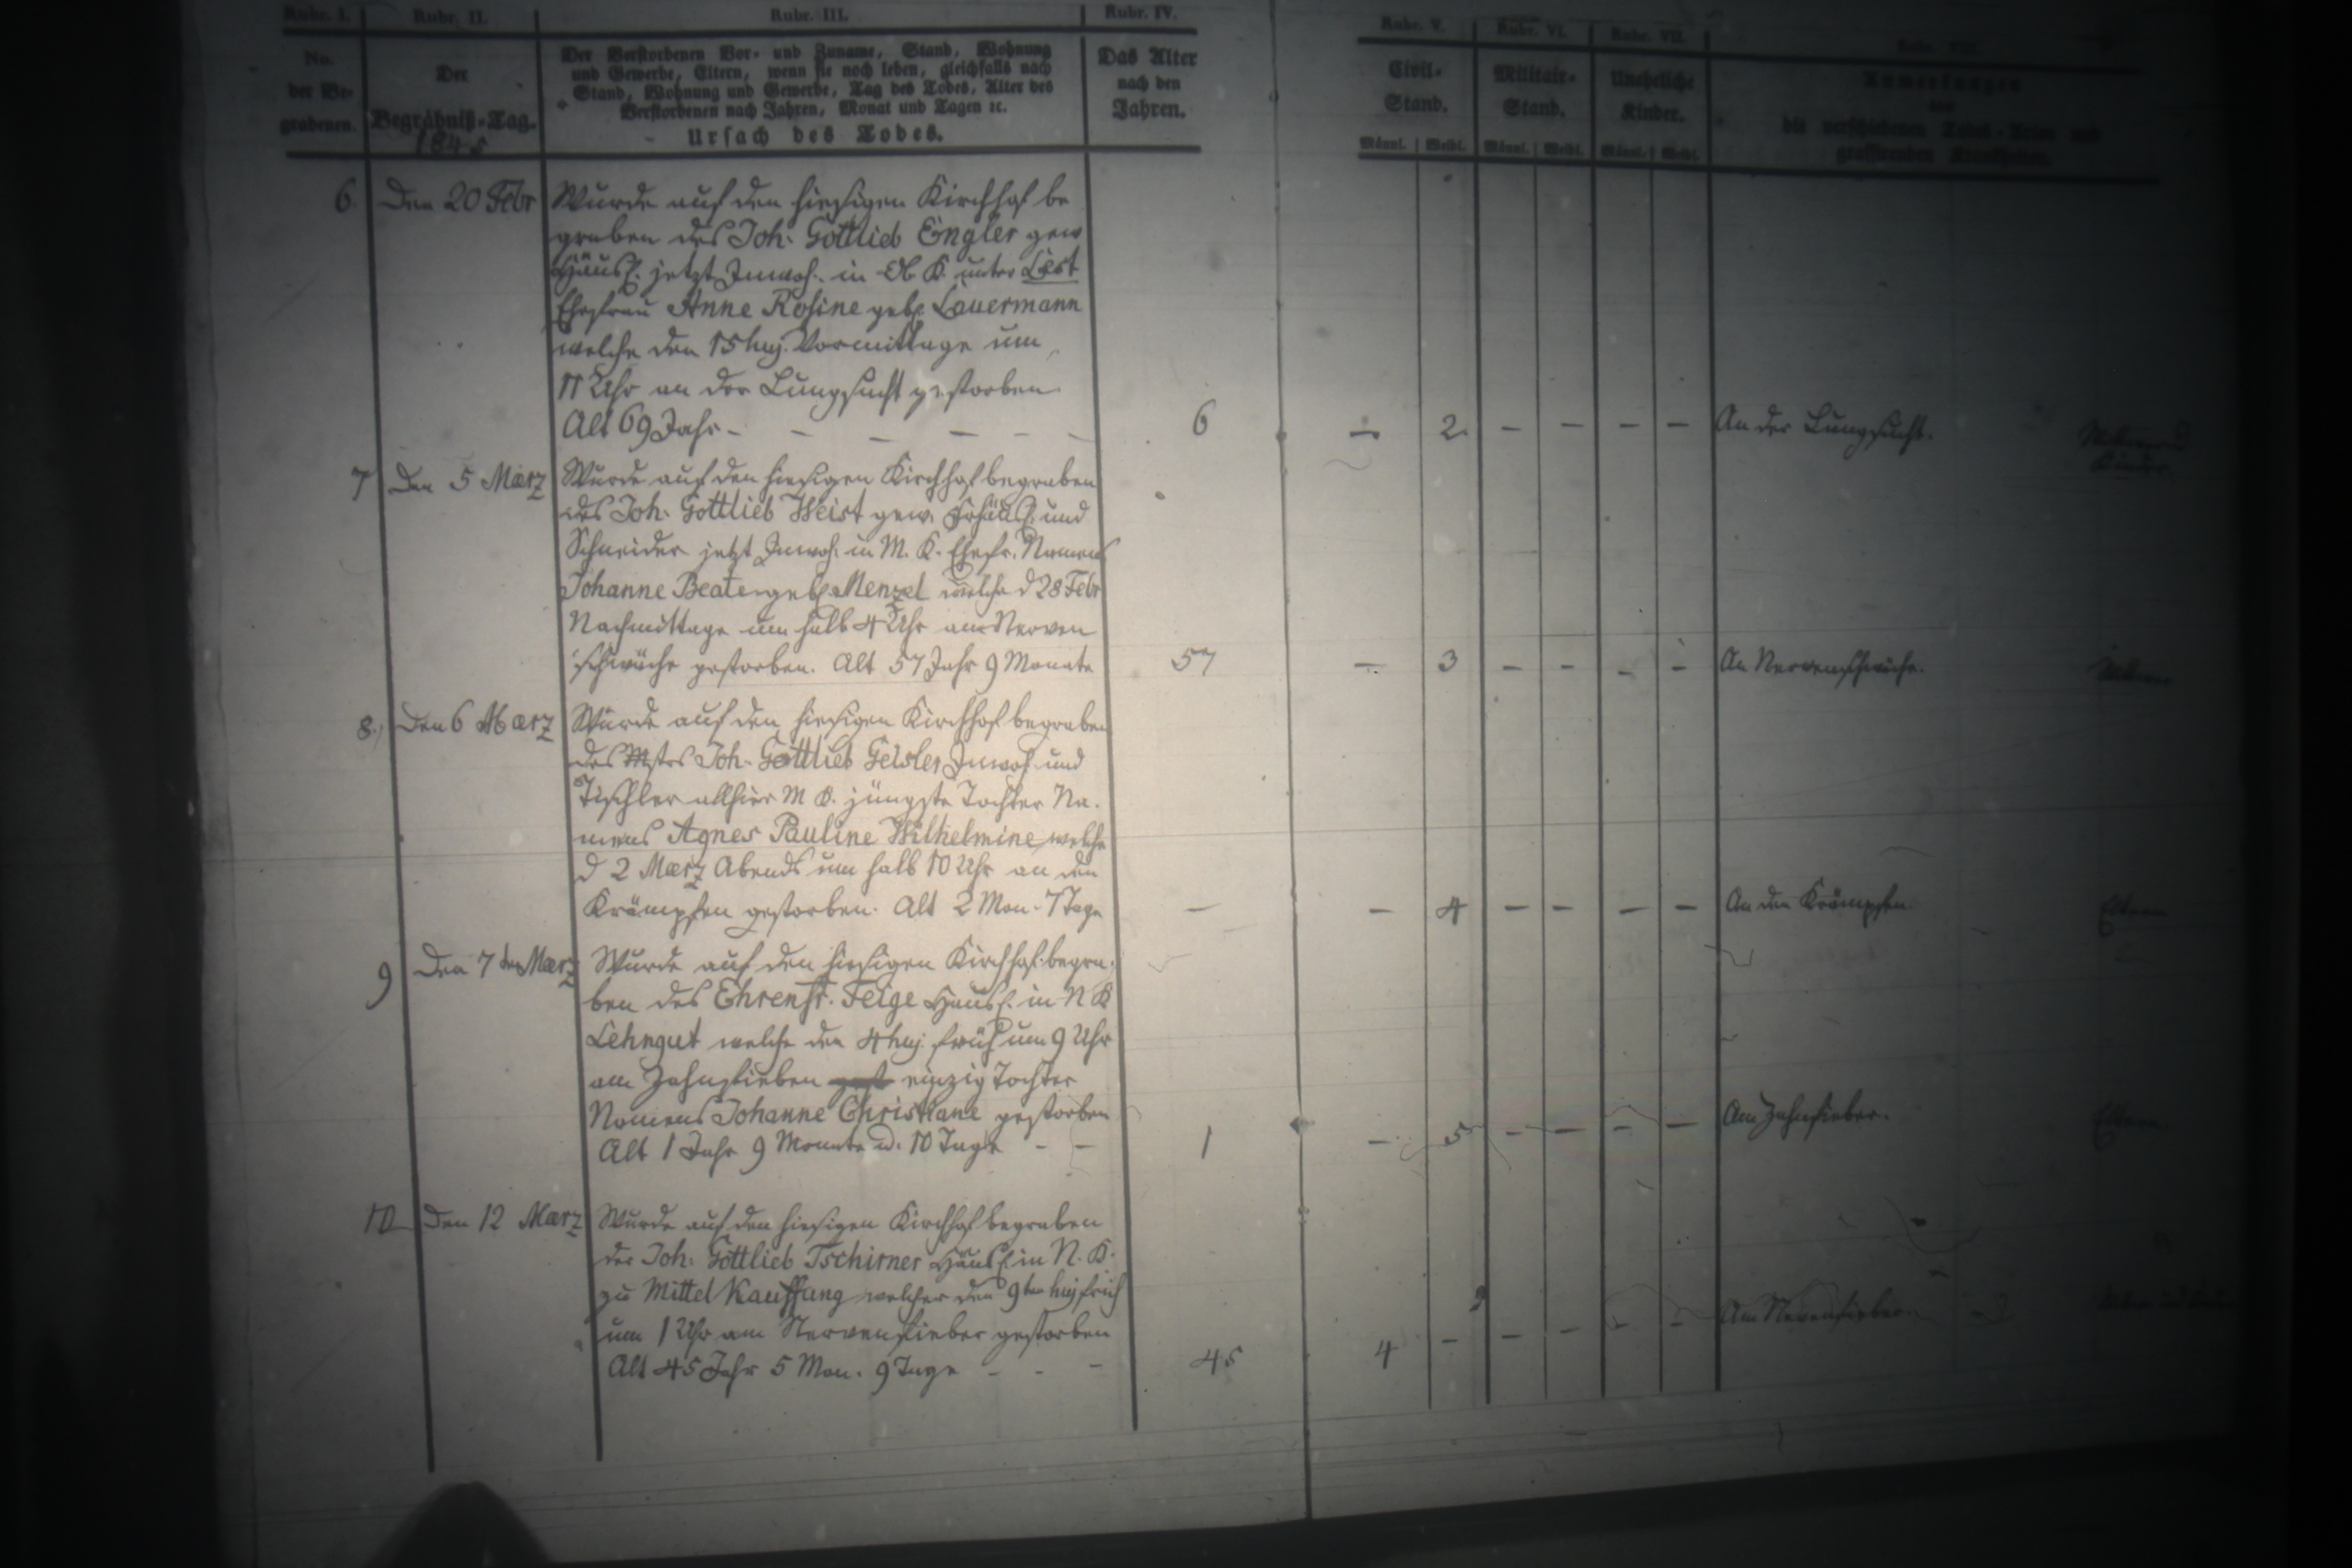 Rubr. I. Rubr. II. Rubr. III. Rubr. IV. Rubr. V. Rubr. VI. Rubr. VII. Rubr. VIII.
No.
der Be-
grabenen.
Der
Begräbniß-Tag.
1845
Der Verstorbenen Vor- und Zuname, Stand, Wohnung
und Gewerbe, Eltern, wenn sie noch leben, gleichfalls nach
Stand, Wohnung und Gewerbe, Tag des Todes, Alter des
Verstorbenen nach Jahren, Monat und Tagen ꝛc.
Ursach des Todes.
Das Alter
nach den
Jahren.
Civil-
Stand.
Militair-
Stand.
Uneheliche
Kinder.
Anmerkungen
die verschiedenen Todes-Arten und
grassirenden Krankheiten.
Männl. Weibl. Männl. Weibl. Männl. Weibl.
6. Den 20 Febr Wurde auf den hiesigen Kirchhof be
graben des Joh. Gottlieb Engler gew
Häusl. jetzt Inwoh. in Ob K. unter Lest
Ehefrau Anne Rosine geb. Lauermann
welche den 15 huj. Vormittage um
11 Uhr an der Lungsucht gestorben
Alt 69 Jahr - - - - - - 6 - 2. - - - - An der Lungsucht.
7 Den 5 Maerz Wurde auf den hiesigen Kirchhof begraben
des Joh. Gottlieb Weist gew. Frhäusl. und
Schneider jetzt Inwoh. in M. K. Ehefr. Namens
Johanne Beate geb. Menzel welche d 28 Febr
Nachmittage um halb 4 Uhr an Nerven
schwäche gestorben. Alt 57 Jahr 9 Monate 57 - 3 - - - - An Nervenschwäche.
8., Den 6 Maerz Wurde auf den hiesigen Kirchhof begraben
des Mstrs Joh. Gottlieb Geisler Inwoh. und
Tischler allhier M K. jüngste Tochter Na.
mens Agnes Pauline Wilhelmine welche
d 2 Maerz Abends um halb 10 Uhr an den
Krämpfen gestorben. Alt 2 Mon. 7 Tage - - 4 - - - - An den Krämpfen Eltern
9 Den 7ten Maerz Wurde auf den hiesigen Kirchhof begra.
ben des Ehrenfr. Feige Häusl. in N K
Lehngut welche den 4 huj. früh um 9 Uhr
am Zahnfieber einzig Tochter
Namens Johanne Christiane gestorben
Alt 1 Jahr 9 Monate u. 10 Tage - - 1 - 5 - - - - Am Zahnfieber. Eltern
10 Den 12 Maerz Wurde auf den hiesigen Kirchhof begraben
der Joh. Gottlieb Tschirner Häusl. in N. K.
zu Mittel Kauffung welcher den 9ten huj früh
um 1 Uhr am Nervenfieber gestorben
Alt 45 Jahr 5 Mon. 9 Tage - - - 45 4 - - - - - Am Nervenfieber